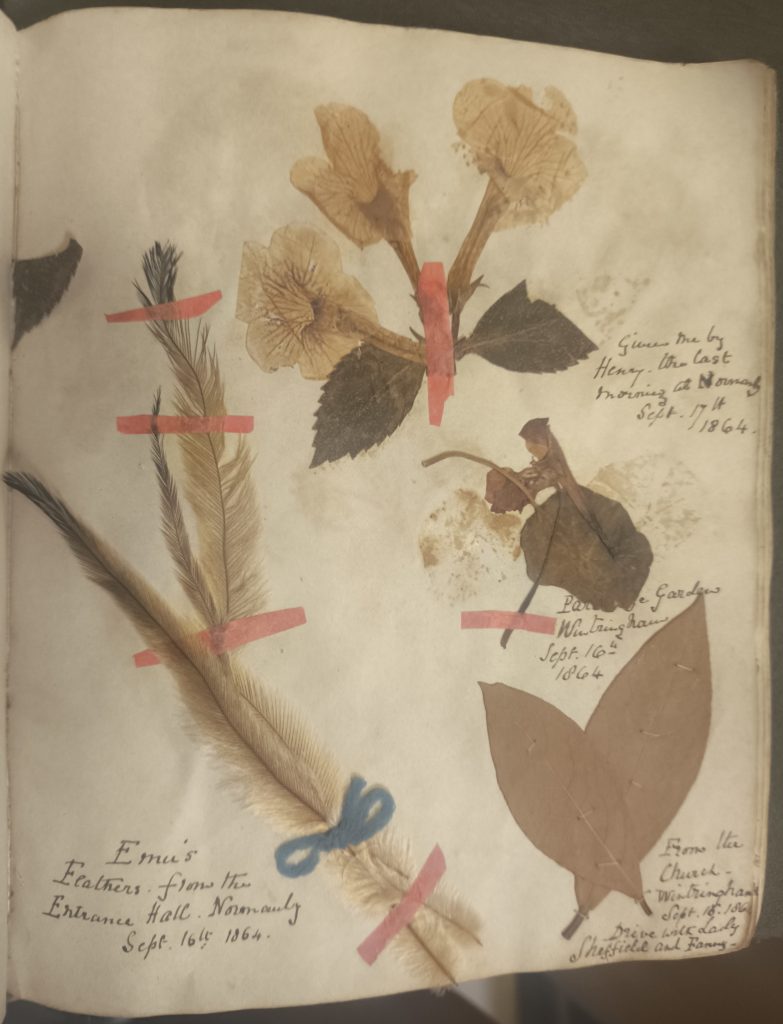 Given me by
Henry. the last
morning at Normanby
Sept. 17th
1864.
Garden
Wintringham
Sept. 16th
1864
Emu's
Feathers. from the
Entrance Hall. Normanby
Sept. 16th 1864.
From the
Church -
Wintringham
Sept. 186
Drive with Lady
Sheffield and Fanny -